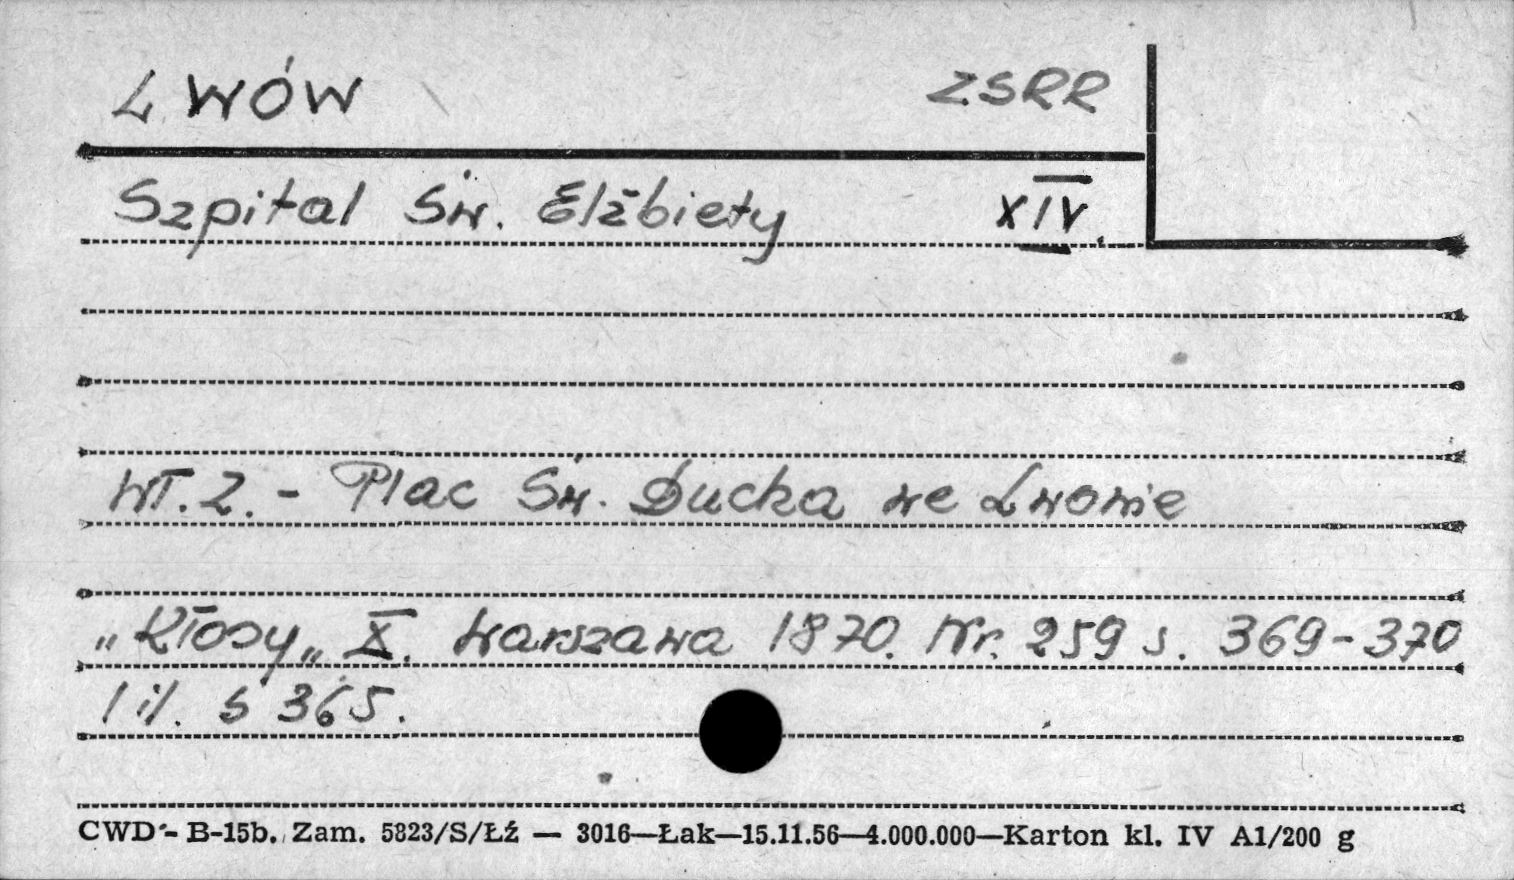 LWÓW ZSRR
Szpital Św. Elżbiety XIV.
Wł. Z. - Plac Św. Ducha we Lwowie
„Kłosy„ X. Warszawa 1870. Nr. 259 s. 369-370
1 il. s 365.
CWD - B-15b. Zam. 5823/S/Łź — 3016—Łak—15.11.56—4.000.000—Karton kl. IV A1/200 g